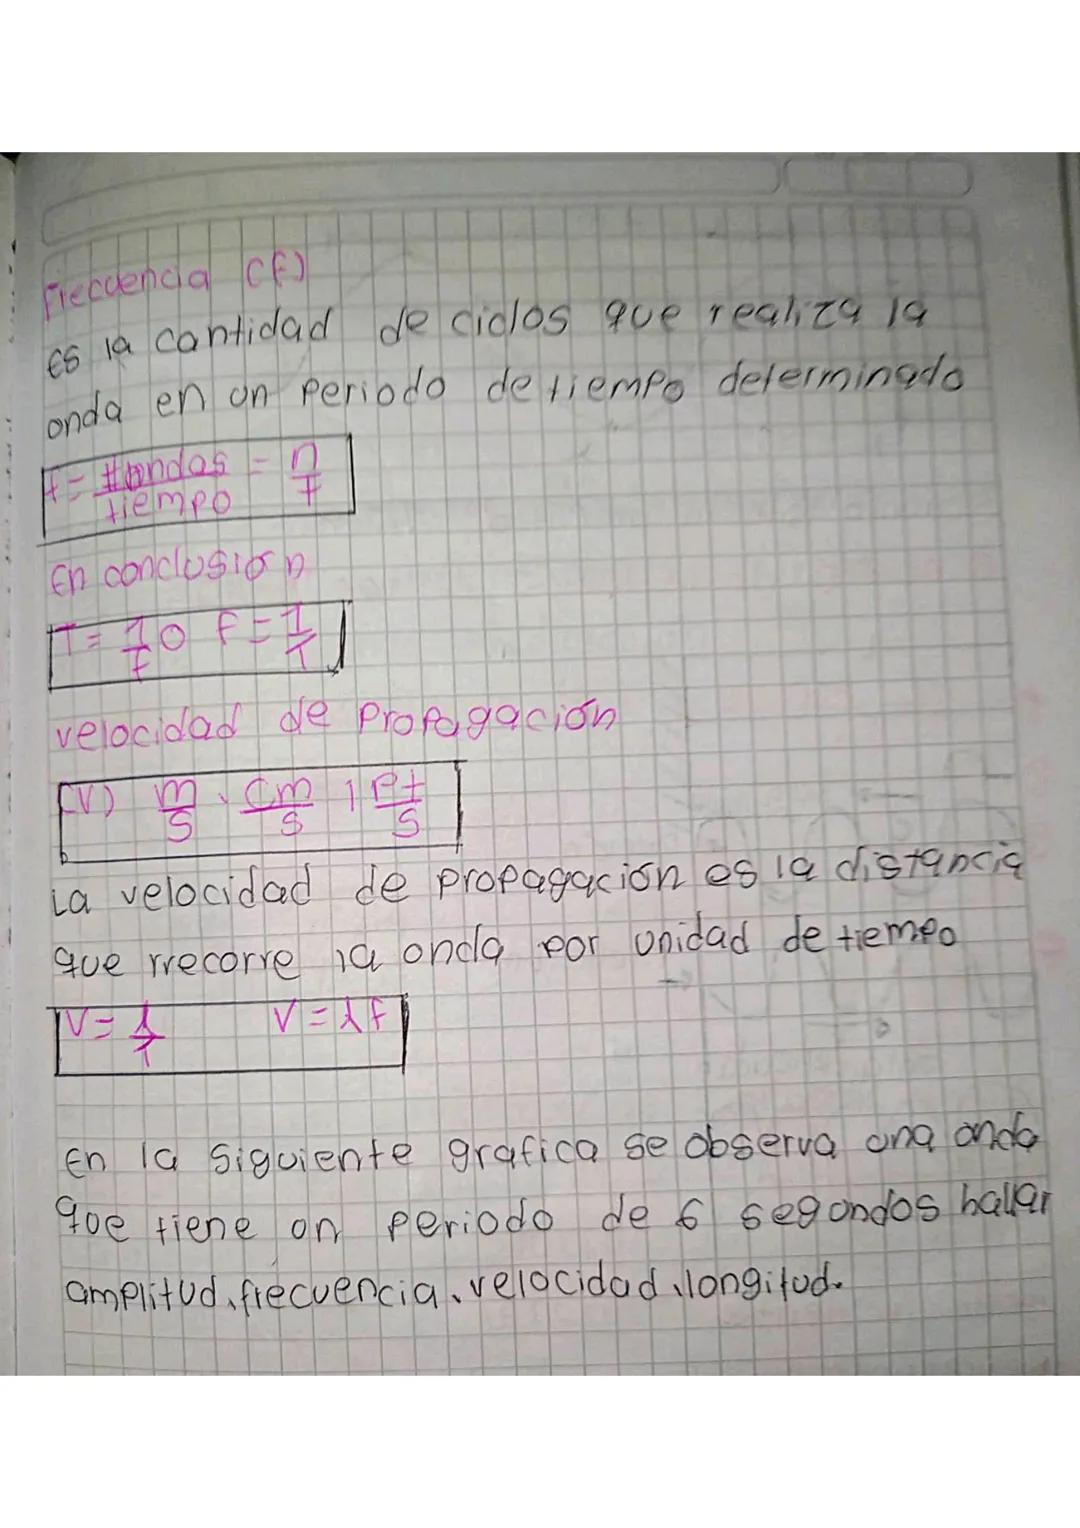 Frecuencia (f)
es la cantidad de ciclos que realiza la
onda en un periodo de tiempo determinado
f = #ondas / tiempo = n / t
En conclusion
T = 1/f o f = 1/T
velocidad de propagación
(V) m/s, cm/s, pt/s
La velocidad de propagación es la distancia
que rrecorre la onda por unidad de tiempo
V = λ/T V = λf
En la siguiente grafica se observa una onda
que tiene un periodo de 6 segundos hallar
amplitud, frecuencia, velocidad, longitud.